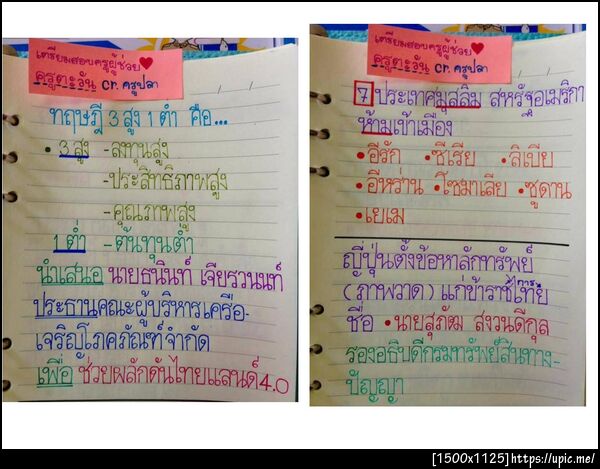 เตรียมสอบครูผู้ช่วย♥
ครูตะวัน cr. ครูปลา
ทฤษฎี 3 สูง 1 ต่ำ คือ...
• 3 สูง - ลงทุนสูง
- ประสิทธิภาพสูง
- คุณภาพสูง
1 ต่ำ - ต้นทุนต่ำ
นำเสนอ นายธนินท์ เจียรวนนท์
ประธานคณะผู้บริหารเครือ-
เจริญโภคภัณฑ์จำกัด
เพื่อ ช่วยผลักดันไทยแลนด์ 4.0
เตรียมสอบครูผู้ช่วย♥
ครูตะวัน cr. ครูปลา
7 ประเทศมุสลิม สหรัฐอเมริกา
ห้ามเข้าเมือง
• อีรัก • ซีเรีย • ลิเบีย
• อีหร่าน • โซมาเลีย • ซูดาน
• เยเม
ญี่ปุ่นตั้งข้อหาลักทรัพย์
(ภาพวาด) แก่ข้าราชการไทย
ชื่อ • นายสุภัฒ สงวนดีกุล
รองอธิบดีกรมทรัพย์สินทาง-
ปัญญา
[1500x1125]https://upic.me/